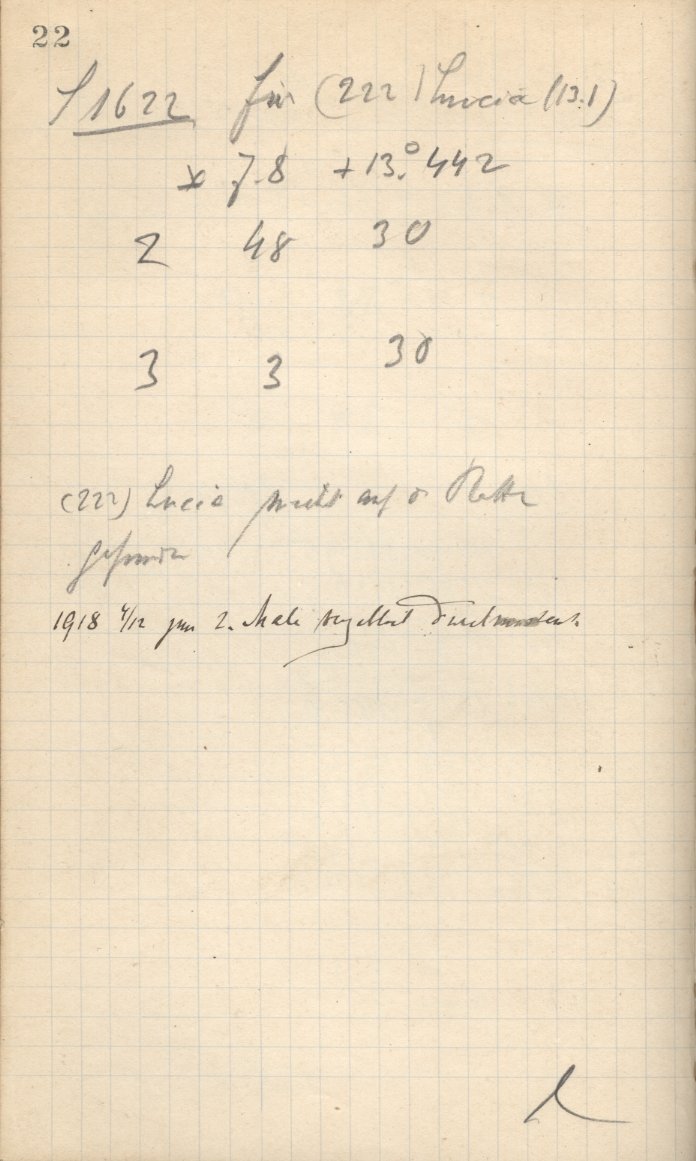 22
1622 für (222) Lucia (13.1)
* 7.8 + 13.°442
2 48 30
3 3 30
(222) Lucia nicht auf d Platte
gefunden
1918 4/12 zum 2. Male vergeblich